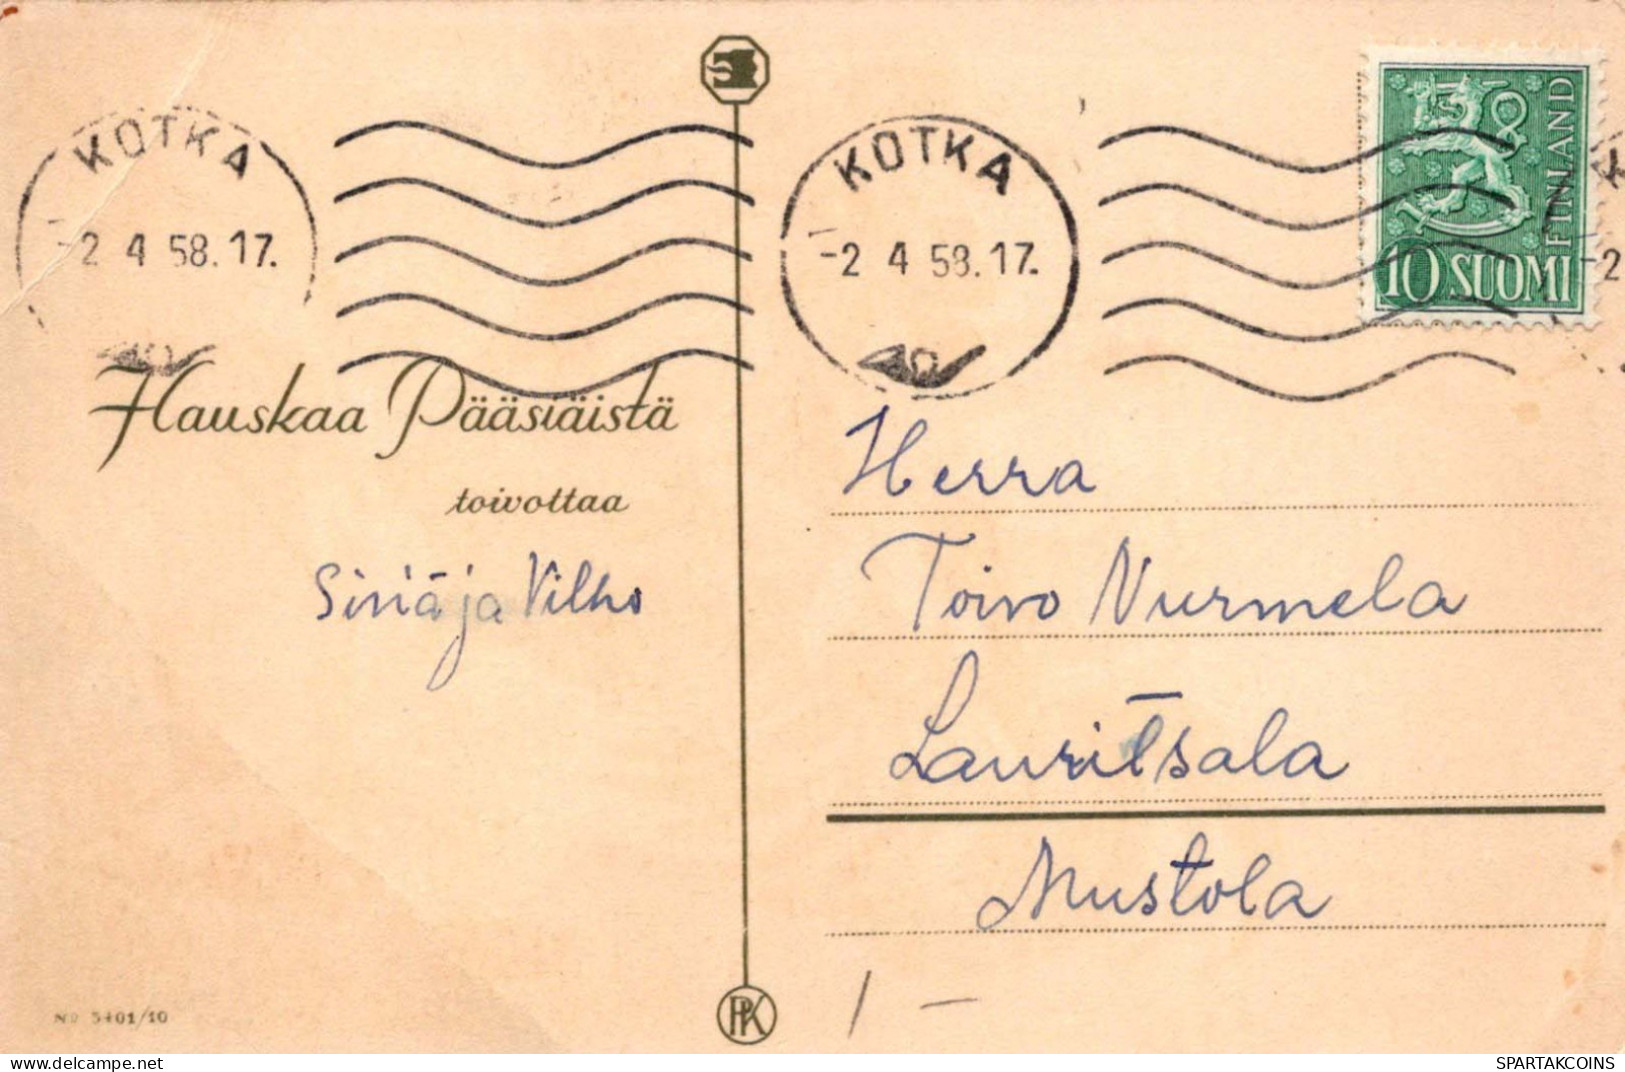 KOTKA
-2 4 58.17.
KOTKA
-2 4 58.17.
FINLAND
10 SUOMI
K
-2
Hauskaa Pääsiäistä
toivottaa
ja Vilho
Herra
Toivo Nurmela
Lauritsala
Mustola
1 -
No 5401/10
PK
delcampe.net
SPARTAKCOINS